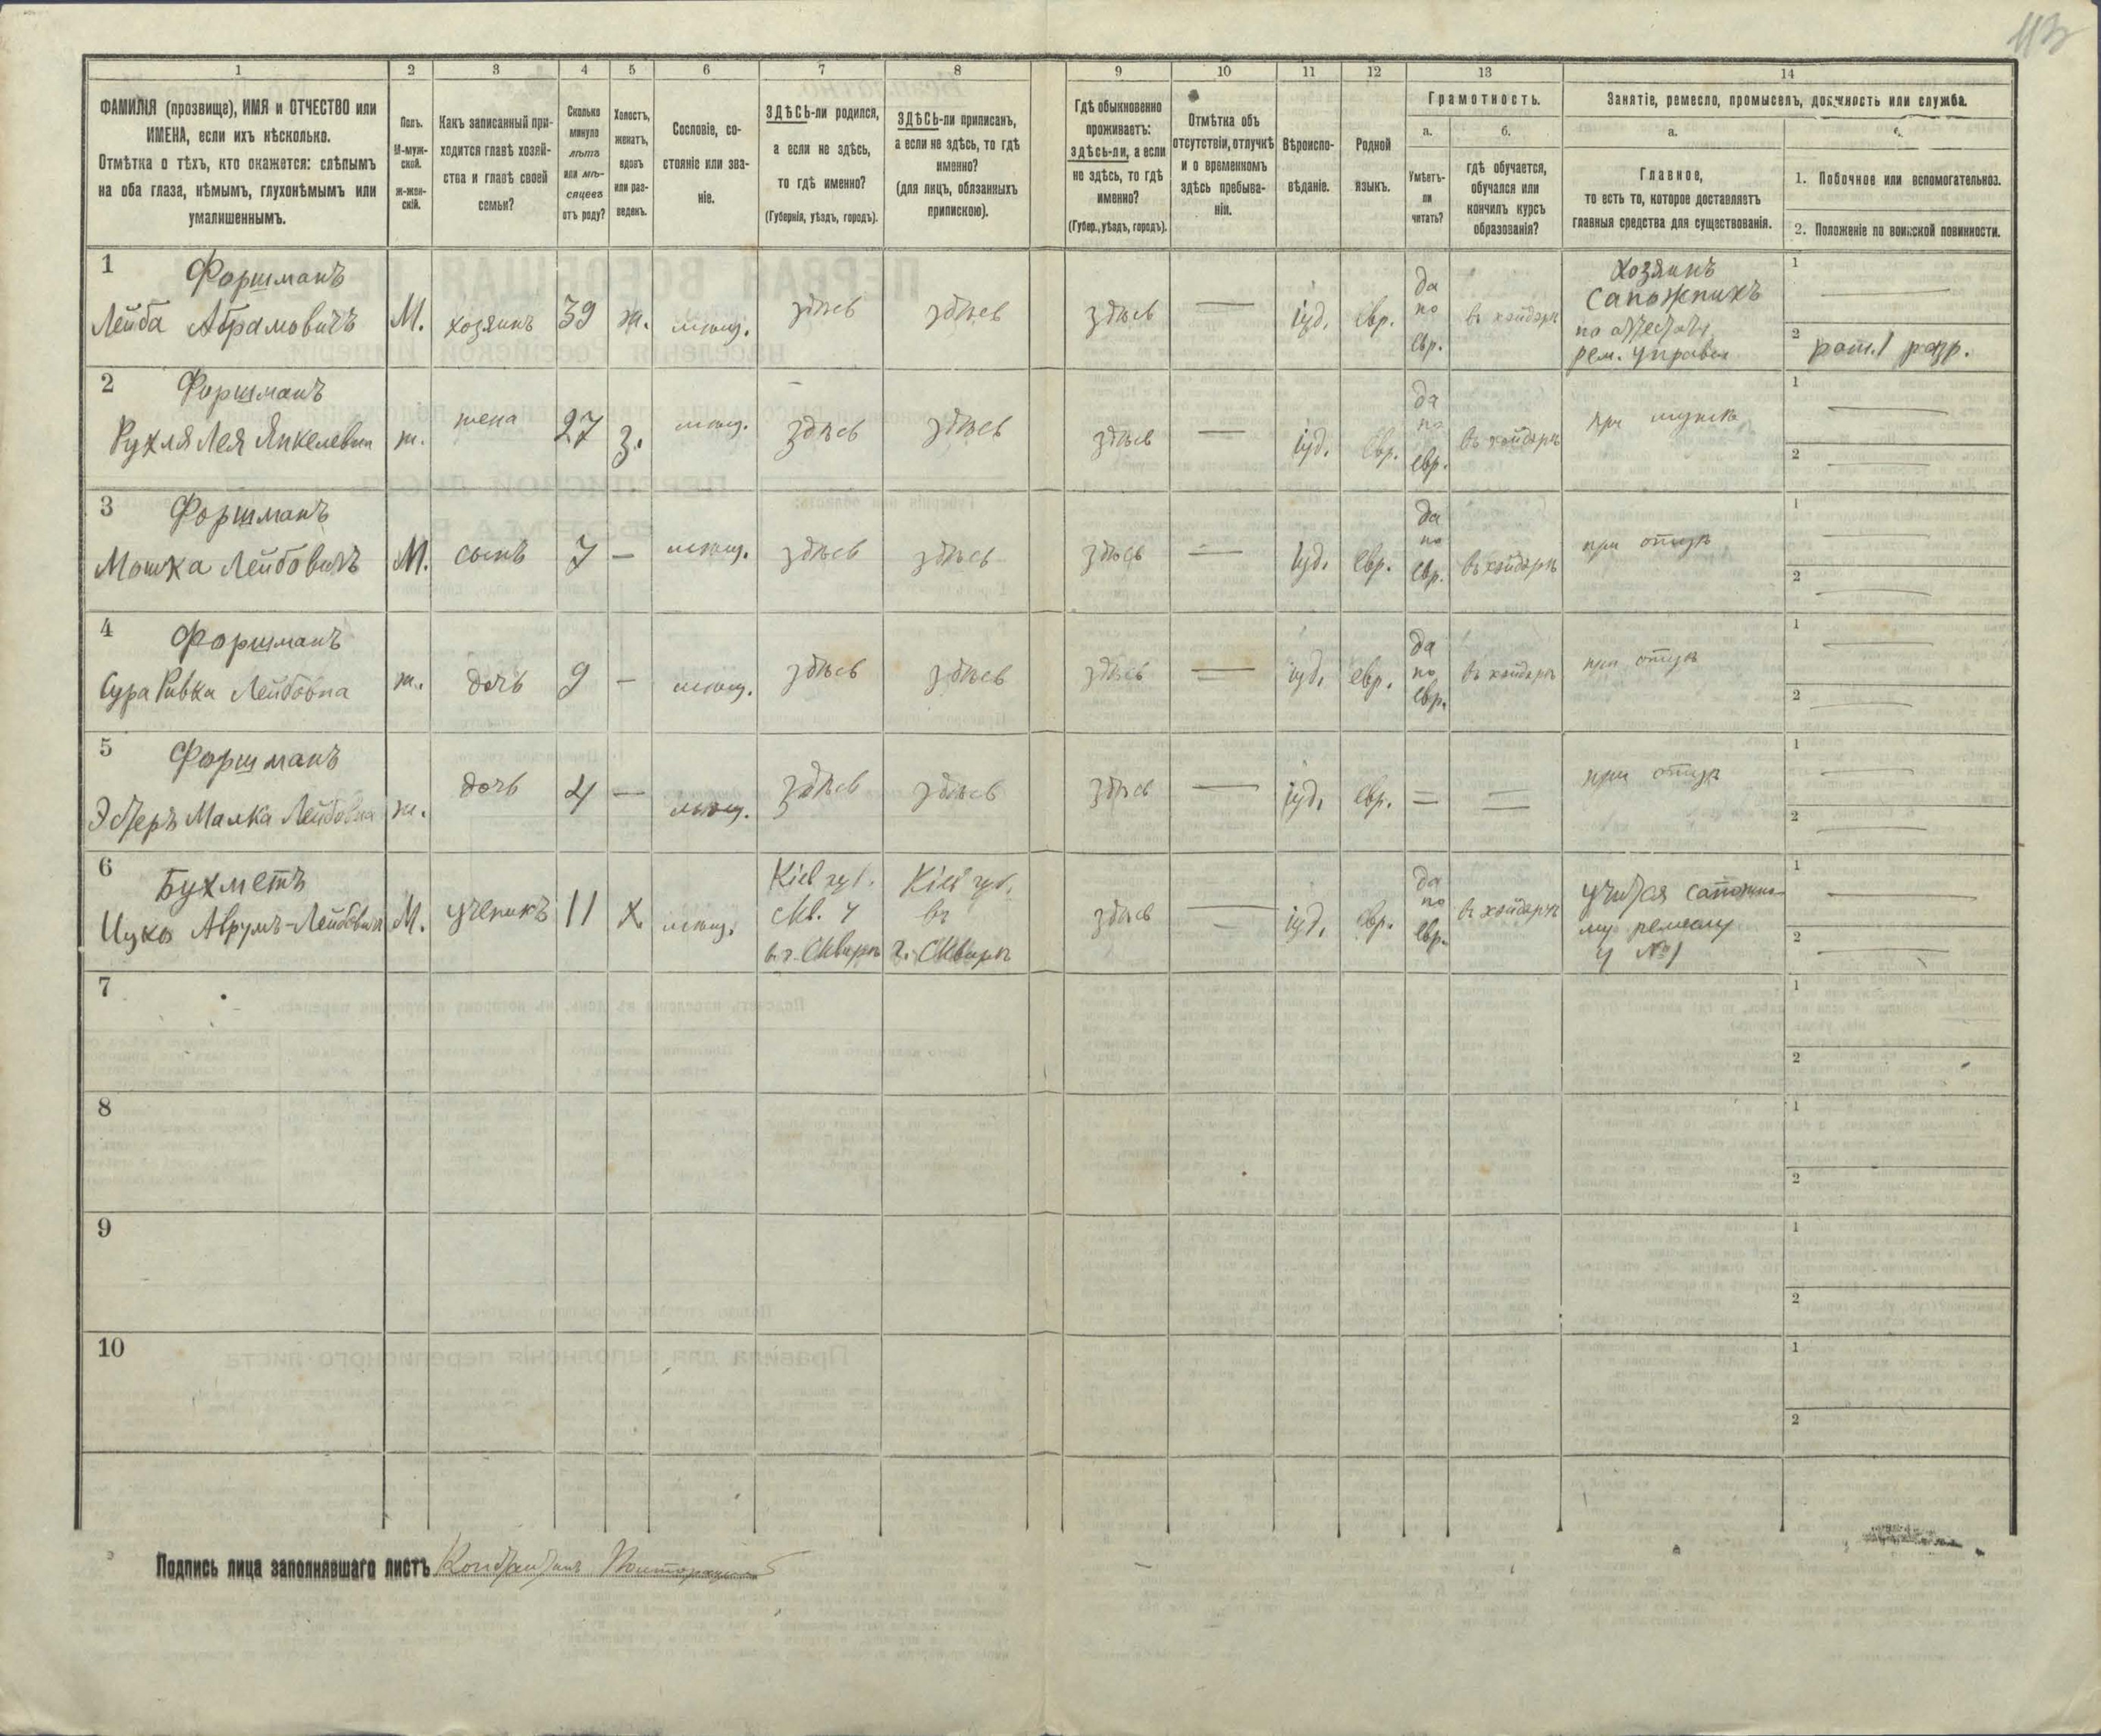 113
1 2 3 4 5 6 7 8 9 10 11 12 13 14
ФАМИЛІЯ (прозвище), ИМЯ и ОТЧЕСТВО или
ИМЕНА, если ихъ нѣсколько.
Отмѣтка о тѣхъ, кто окажется: слѣпымъ
на оба глаза, нѣмымъ, глухонѣмымъ или
умалишеннымъ.
Полъ.
М-муж-
ской.
ж-жен-
скій.
Какъ записанный при-
ходится главѣ хозяй-
ства и главѣ своей
семьи?
Сколько
минуло
лѣтъ
или мѣ-
сяцевъ
отъ роду?
Холостъ,
женатъ,
вдовъ
или раз-
веденъ.
Сословіе, со-
стояніе или зва-
ніе.
ЗДѢСЬ-ли родился,
а если не здѣсь,
то гдѣ именно?
(Губернія, уѣздъ, городъ).
ЗДѢСЬ-ли приписанъ,
а если не здѣсь, то гдѣ
именно?
(для лицъ, обязанныхъ
припискою).
Гдѣ обыкновенно
проживаетъ:
здѣсь-ли, а если
не здѣсь, то гдѣ
именно?
(Губер., уѣздъ, городъ).
Отмѣтка объ
отсутствіи, отлучкѣ
и о временномъ
здѣсь пребыва-
ніи.
Вѣроиспо-
вѣданіе.
Родной
языкъ.
Грамотность.
а.
Умѣетъ-
ли
читать?
б.
гдѣ обучается,
обучался или
кончилъ курсъ
образованія?
Занятіе, ремесло, промыселъ, должность или служба.
а.
Главное,
то есть то, которое доставляетъ
главныя средства для существованія.
1. Побочное или вспомогательное.
2. Положеніе по воинской повинности.
1 Форшманъ
Лейба Абрамовичъ
М.
хозяинъ
39
ж.
мѣщ.
здѣсь
здѣсь
здѣсь
—
іуд.
евр.
да
по
евр.
въ хейдерѣ
хозяинъ
сапожникъ
по аттестату
рем. управы
1 —
2 рат. 1 разр.
2 Форшманъ
Рухля Лея Янкелевна
ж.
жена
27
з.
мѣщ.
здѣсь
здѣсь
здѣсь
—
іуд.
евр.
да
по
евр.
въ хейдерѣ
при мужѣ
1 —
2 —
3 Форшманъ
Мошка Лейбовичъ
М.
сынъ
7
—
мѣщ.
здѣсь
здѣсь
здѣсь
—
іуд.
евр.
да
по
евр.
въ хейдерѣ
при отцѣ
1 —
2 —
4 Форшманъ
Сура Ривка Лейбовна
ж.
дочь
9
—
мѣщ.
здѣсь
здѣсь
здѣсь
—
іуд.
евр.
да
по
евр.
въ хейдерѣ
при отцѣ
1 —
2 —
5 Форшманъ
Эстеръ Малка Лейбовна
ж.
дочь
4
—
мѣщ.
здѣсь
здѣсь
здѣсь
—
іуд.
евр.
=
=
при отцѣ
1 —
2 —
6 Бухметъ
Ицко Аврумъ-Лейбович
М.
ученикъ
11
х.
мѣщ.
Кіев губ.
Скв. у
в г. Сквирѣ
Кіев губ.
въ
г. Сквирѣ
здѣсь
—
іуд.
евр.
да
по
евр.
въ хейдерѣ
учится сапожно-
му ремеслу
у №1
1 —
2 —
7
1
2
8
1
2
9
1
2
10
1
2
Подпись лица заполнявшаго листъ